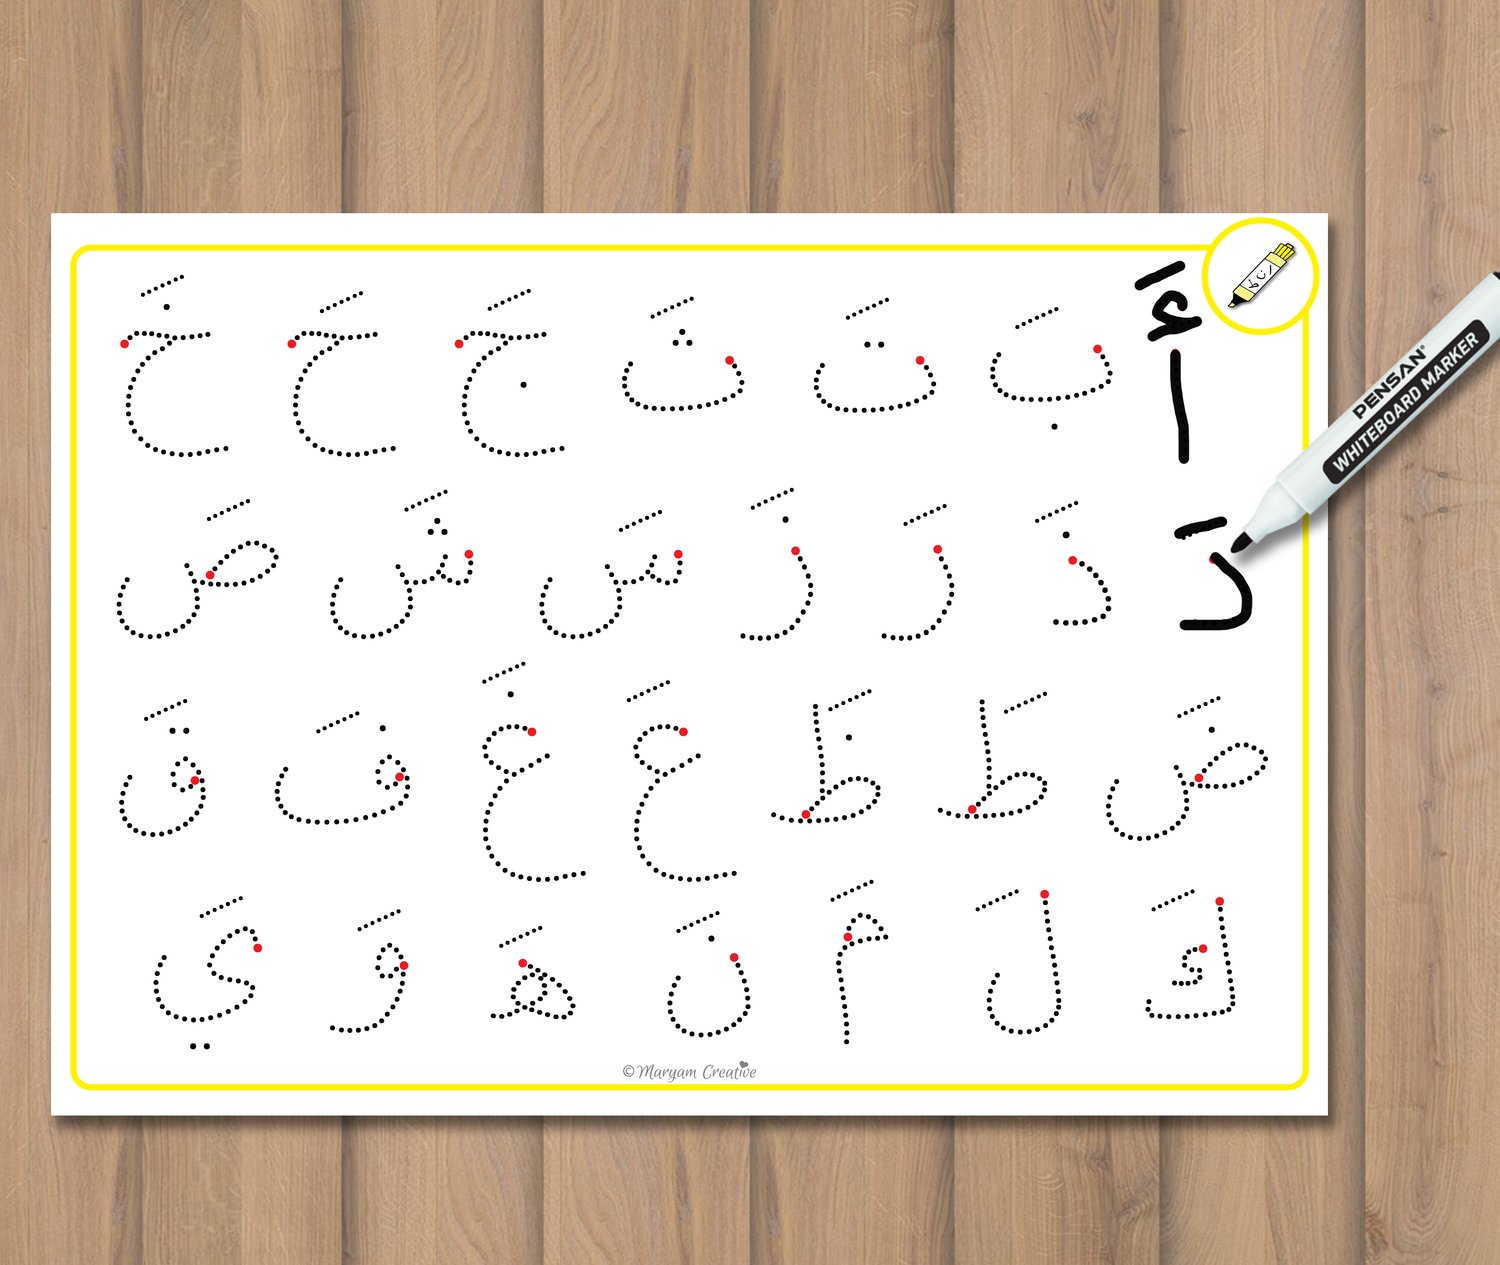 أَ بَ تَ ثَ جَ حَ خَ
دَ ذَ رَ زَ سَ شَ صَ
ضَ طَ ظَ عَ غَ فَ قَ
كَ لَ مَ نَ هَ وَ يَ
©Maryam Creative
PENSAN
WHITEBOARD MARKER